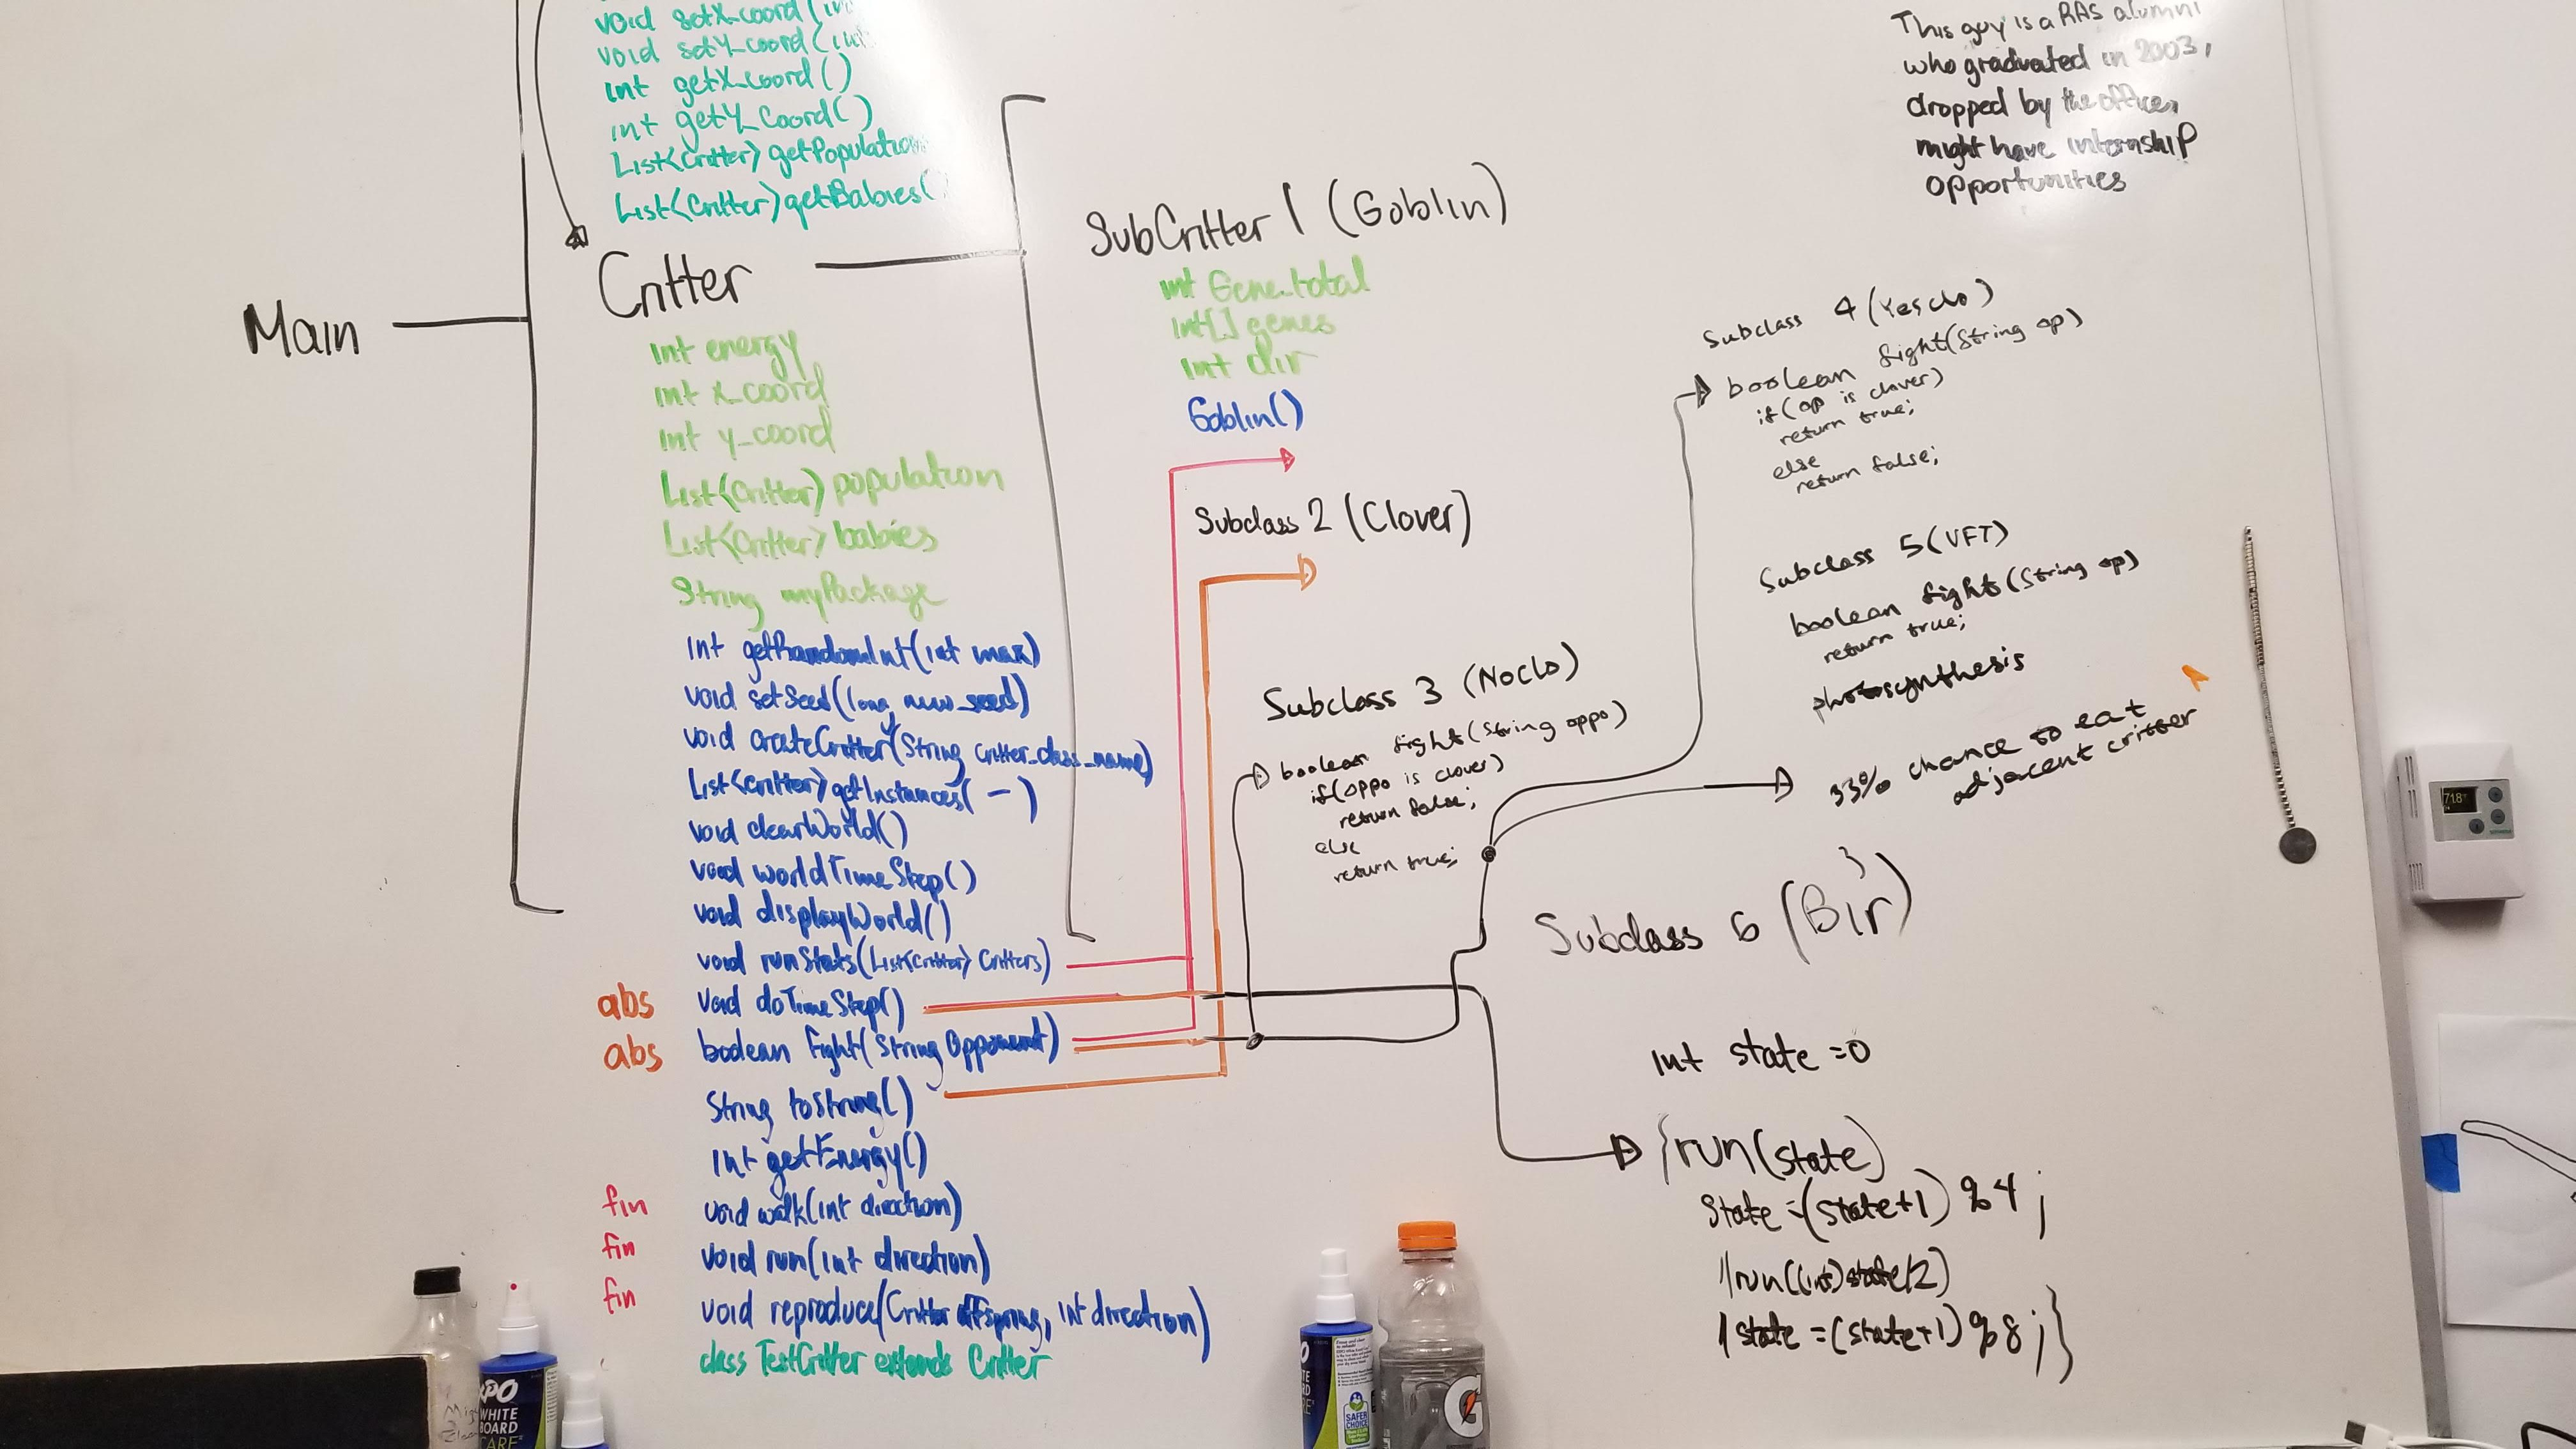 void setX_coord(int
void setY_coord(int
int getX_coord()
int getY_coord()
List<Critter> getPopulation
List<Critter> getBabies()
Main
Critter
int energy
int x_coord
int y_coord
List<Critter> population
List<Critter> babies
String myPackage
int getRandomInt(int max)
void setSeed(long new_seed)
void createCritter(String critter_class_name)
List<Critter> getInstances( - )
void clearWorld()
void worldTimeStep()
void displayWorld()
void runStats(List<Critter> Critters)
abs void doTimeStep()
abs boolean fight(String Opponent)
String toString()
int getEnergy()
fin void walk(int direction)
fin void run(int direction)
fin void reproduce(Critter offspring, int direction)
class TestCritter extends Critter
SubCritter 1 (Goblin)
int Gene_total
int[] genes
int dir
Goblin()
Subclass 2 (Clover)
Subclass 3 (Noclo)
boolean fight(String oppo)
if(oppo is clover)
return false;
else
return true;
This guy is a RAS alumni
who graduated in 2003,
dropped by the office,
might have internship
opportunities
Subclass 4 (Yesclo)
boolean fight(String op)
if(op is clover)
return true;
else
return false;
Subclass 5 (VFT)
boolean fight(String op)
return true;
photosynthesis
33% chance to eat
adjacent critter
Subclass 6 (Bir)
int state =0
{run(state)
State =(state+1) %4;
//run((int)state/2)
/state =(state+1)%8;}
718
EXPO
WHITE
BOARD
CARE
SAFER
CHOICE
G